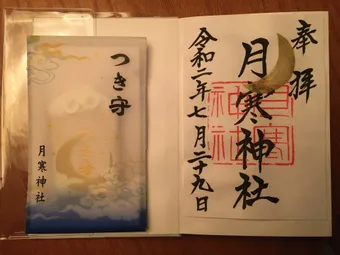 つき守
月寒神社
奉拝
月寒神社
令和二年七月二十九日
月寒
神社